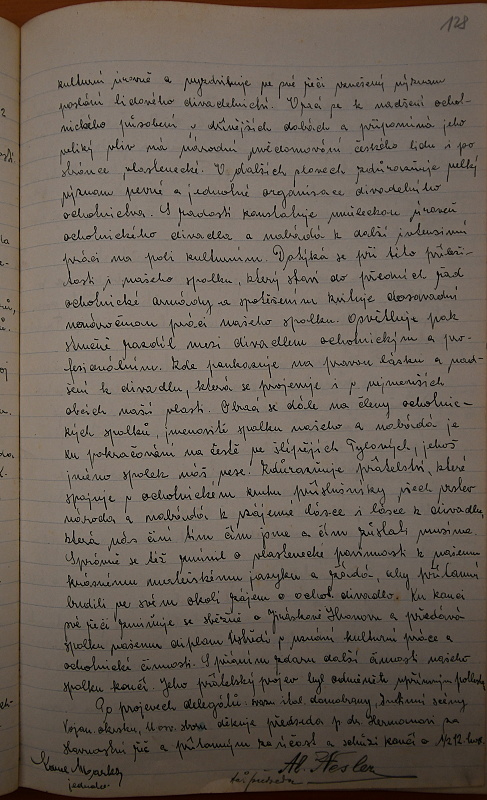 128
kulturní úrovně a vyzdvihuje ve své řeči vznešený význam
poslání lidového divadelnictví. Vrací se k nadšení ochot-
nického působení v dřívějších dobách a připomíná jeho
veliký vliv na národní uvědomování českého lidu i po
stránce vlastenecké. V dalších slovech zdůrazňuje velký
význam pevné a jednotné organisace divadelního
ochotnictva. S radostí konstatuje uměleckou úroveň
ochotnického divadla a nabádá k další intensivní
práci na poli kulturním. Dotýká se při této příleži-
tosti i našeho spolku, který staví do předních řad
ochotnické armády a spolčením kvituje dosavadní
nenáročnou práci našeho spolku. Osvětluje pak
stručně rozdíl mezi divadlem ochotnickým a pro-
fesionálním. Zde poukazuje na pravou lásku a nad-
šení k divadlu, která se projevuje i v nejmenších
obcích naší vlasti. Obrací se dále na členy ochotnic-
kých spolků, jmenovitě spolku našeho a nabádá je
ku pokračování na cestě ve šlépějích Tylových, jehož
jméno spolek náš nese. Zdůrazňuje přátelství, které
spojuje v ochotnickém kruhu příslušníky všech vrstev
národa a nabádá k vzájemné lásce i lásce k divadlu,
která nás činí tím čím jsme a čím zůstati musíme.
Správně se též zmínil o vlastenecké povinnosti k našemu
krásnému mateřskému jazyku a žádá, aby přítomní
budili ve svém okolí zájem o ochot. divadlo. Ku konci
své řeči zmiňuje se sběžně o Jiráskově Hronovu a předává
spolku našemu diplom Ústřední v uznání kulturní práce a
ochotnické činnosti. S přáním zdaru další činnosti našeho
spolku končí. Jeho přátelský projev byl odměněn upřímným potleskem.
Po projevech delegátů
děkuje předseda p. dr. Hermanovi za
řeč a přítomným za účast a schůzi končí o 1/2 12. hod.
Karel
jednatel
Al. Fesler
t. č. předseda